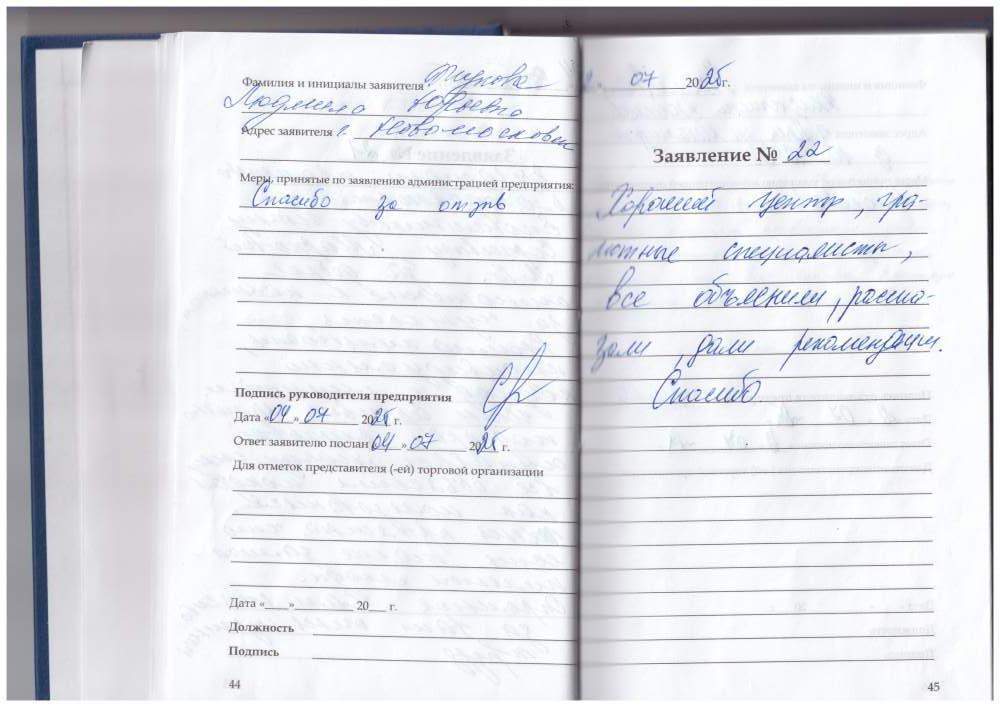 Фамилия и инициалы заявителя Жукова
Людмила Юрьевна
Адрес заявителя г. Новомосковск
Меры, принятые по заявлению администрацией предприятия:
Спасибо за отзыв
Подпись руководителя предприятия
Дата «04» 07 2025 г.
Ответ заявителю послан «04» 07 2025 г.
Для отметок представителя (-ей) торговой организации
Дата «____»__________ 20___ г.
Должность
Подпись
44
2. 07 2025 г.
Заявление № 22
Хороший центр, гра-
мотные специалисты,
все объяснили, расска-
зали, дали рекомендации.
Спасибо
45